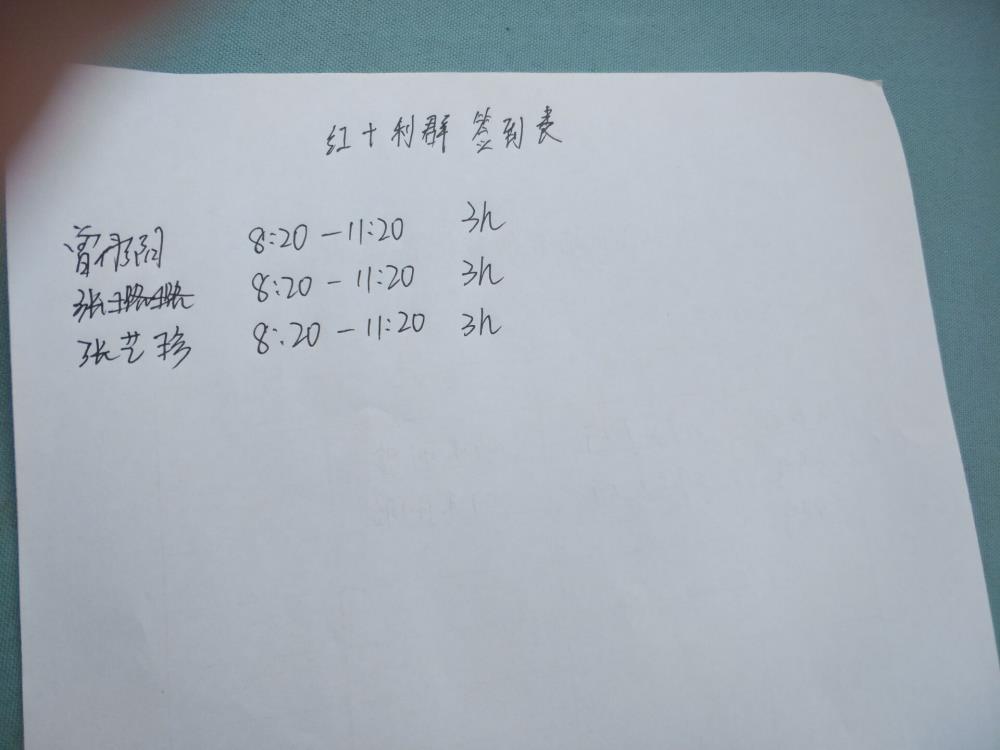 红十利群 签到表
曾 8:20 — 11:20 3h
张 8:20 — 11:20 3h
张艺珍 8:20 — 11:20 3h